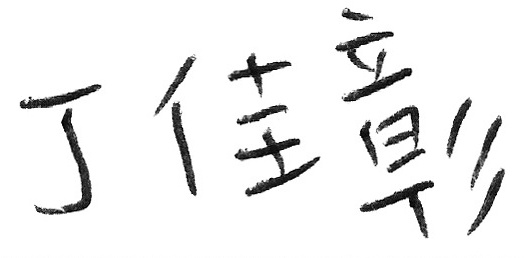 丁佳彰